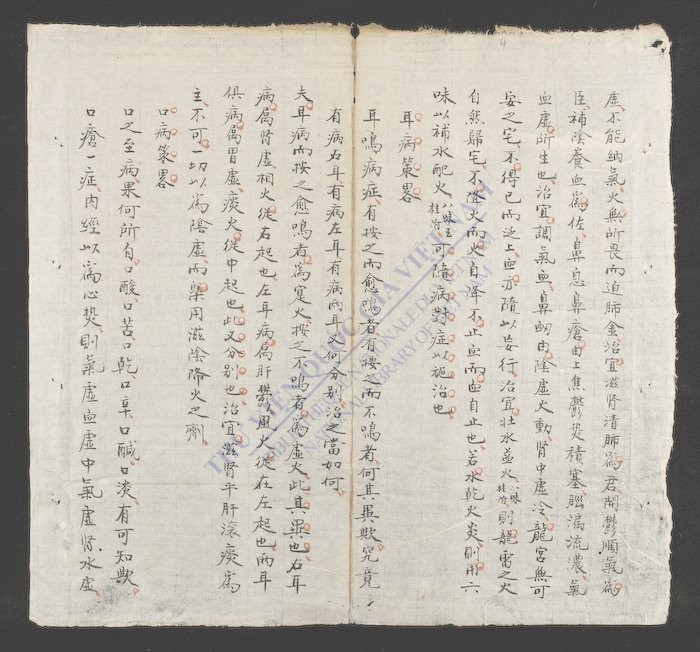 虛不能納氣火無所畏而迫肺金治宜滋腎清肺為君開鬱順氣為
臣補陰養血為佐鼻息鼻瘡由上焦鬱熱積塞腦漏流濃氣
血虛所生也治宜調氣血鼻衄由陰虛火動腎中虛冷龍宮無可
安之宅不得已而泛上血亦隨以妄行治宜壯水益火八味桂附則龍雷之火
自然歸宅不降火而火自降不止血而血自止也若水乾火炎則用六
味以補水配火八味可隨病對症以施治也
耳病策畧
耳鳴病症有按之而愈鳴者有按之而不鳴者何其異歟究竟
有病右耳有病左耳有病兩耳又何分別治之當如何
夫耳病而按之愈鳴者為寔火按之不鳴者為虛火此其異也右耳
病屬腎虛相火從右起也左耳病屬肝鬱風火從在左起也兩耳
俱病屬胃虛痰火從中起也此又分別也治宜滋腎平肝滚痰為
主不可一切以為陰虛而槩用滋陰降火之劑
口病策畧
口之至病果何所自口酸口苦口乾口辛口鹹口淡有可知歟
口瘡一症內經以為心熱則氣虛血虛中氣虛腎水虛
THƯ VIỆN QUỐC GIA VIỆT NAM
NATIONAL LIBRARY OF VIETNAM